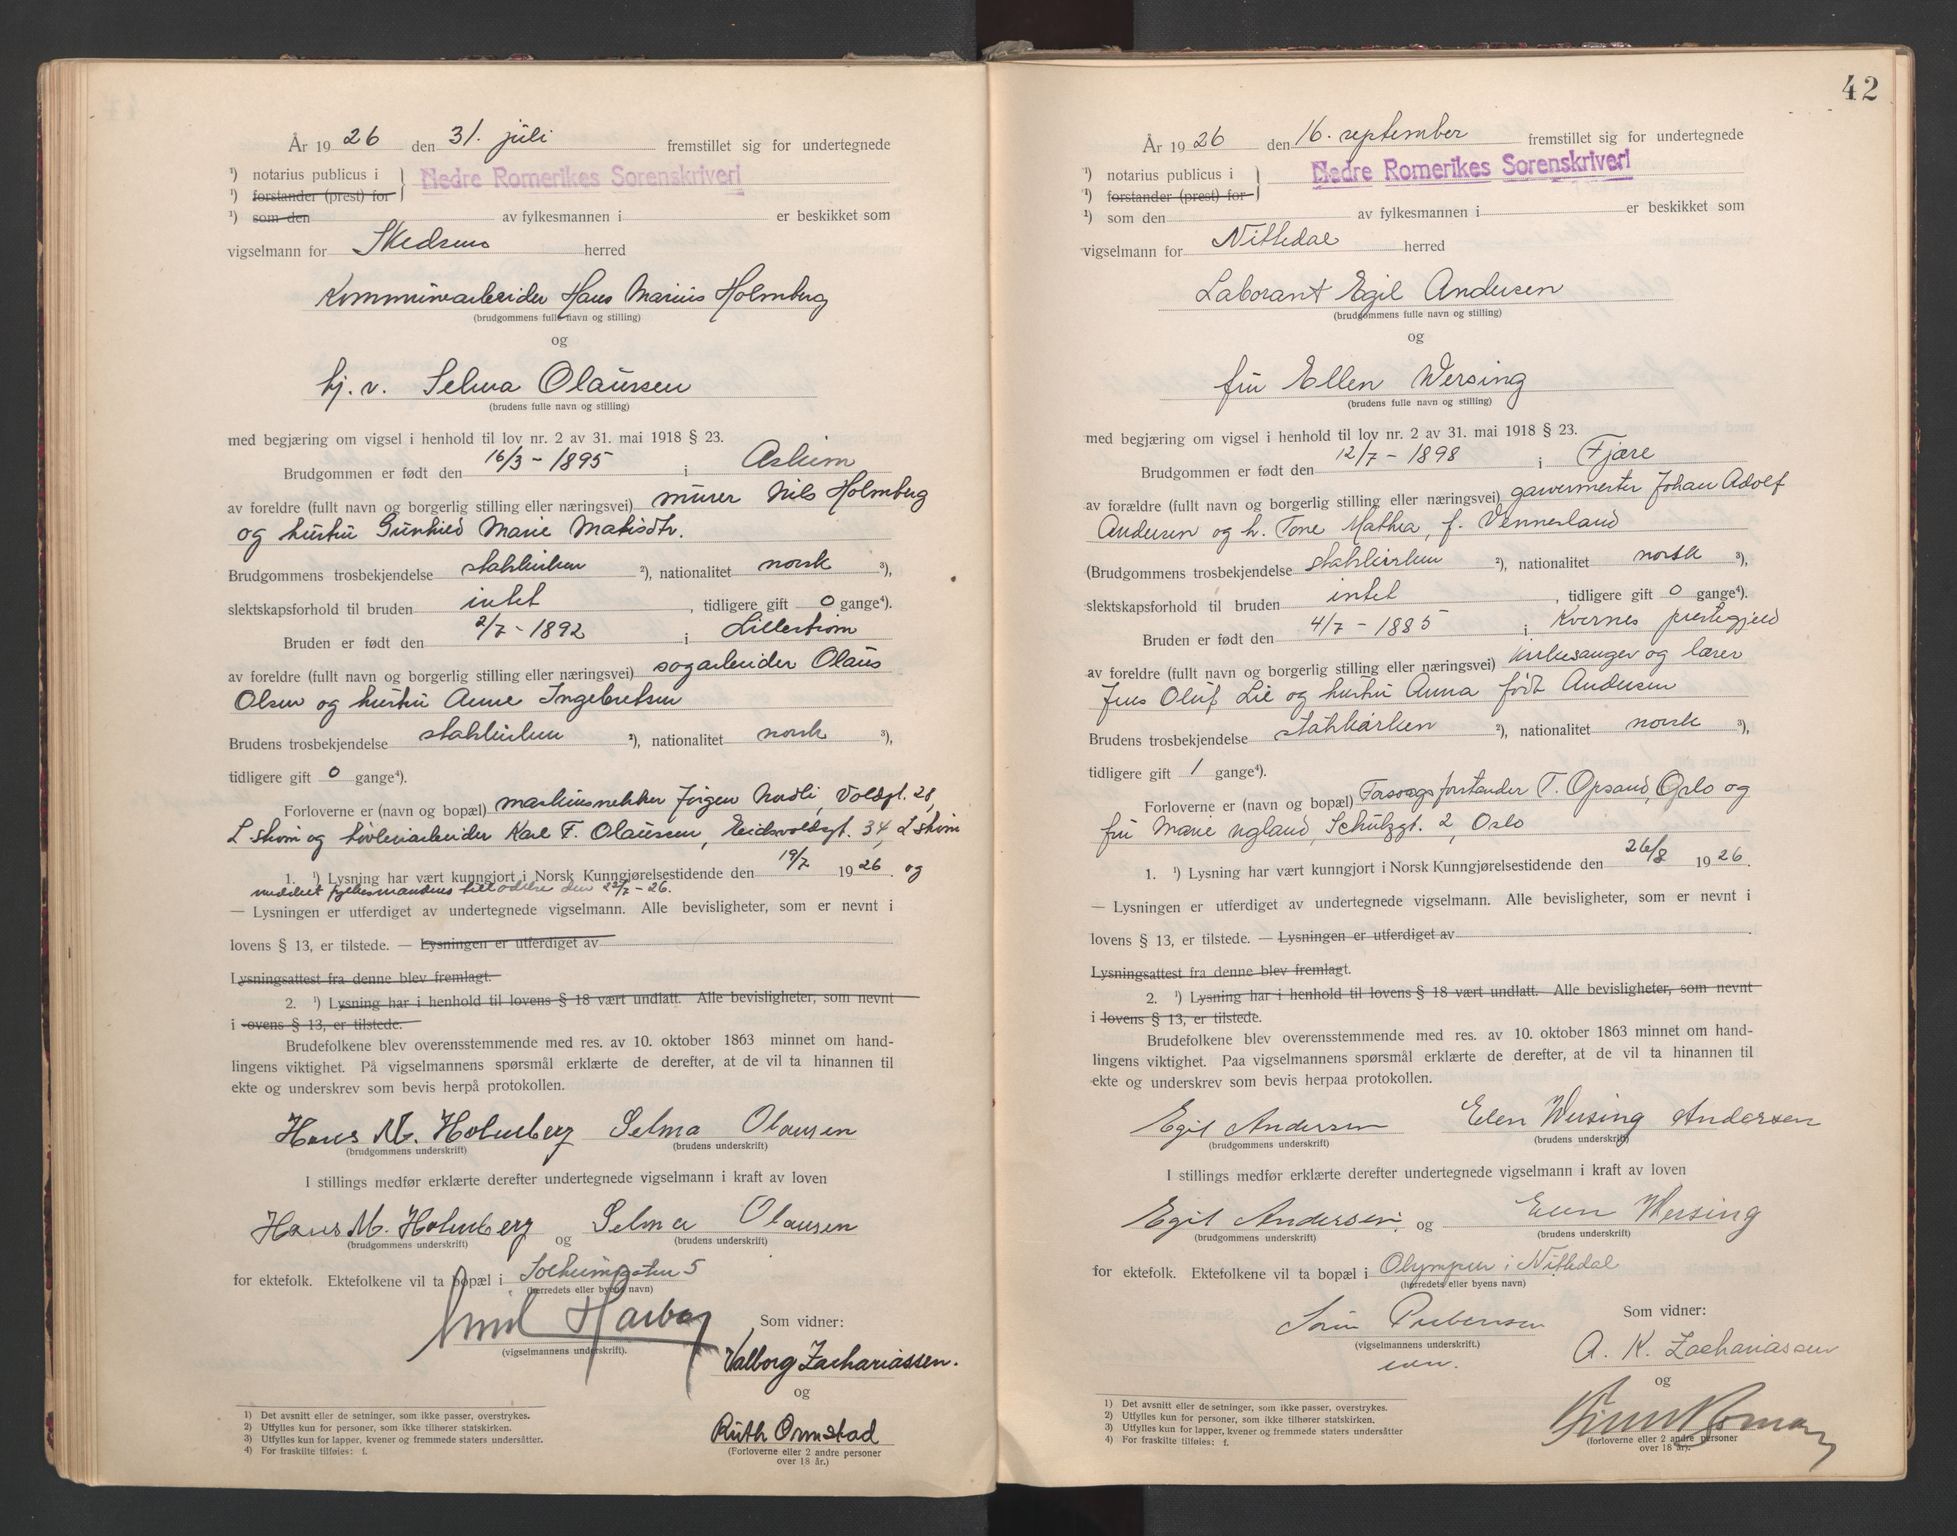 År 1926 den 31. juli fremstillet sig for undertegnede
¹) notarius publicus i } Nedre Romerikes Sorenskriveri
¹) forstander (prest) for
¹) som den av fylkesmannen i er beskikket som
vigselmann for Skedsmo herred
Kommunearbeider Hans Marius Holmberg
(brudgommens fulle navn og stilling)
og
hj. v. Selma Olaussen
(brudens fulle navn og stilling)
med begjæring om vigsel i henhold til lov nr. 2 av 31. mai 1918 § 23.
Brudgommen er født den 16/3 - 1895 i Askim
av foreldre (fullt navn og borgerlig stilling eller næringsvei) murer Nils Holmberg
og hustru Gunhild Marie
Brudgommens trosbekjendelse statskirken ²), nationalitet norsk ³),
slektskapsforhold til bruden intet, tidligere gift 0 gange⁴).
Bruden er født den 2/7 - 1892 i Lillestrøm
av foreldre (fullt navn og borgerlig stilling eller næringsvei) sagarbeider Olaus
Olsen og hustru Anne Ingebretsen
Brudens trosbekjendelse statskirken ²), nationalitet norsk ³),
tidligere gift 0 gange⁴).
Forloverne er (navn og bopæl) maskinsnekker Jørgen Nordli, Voldgt. 28,
L.strøm og høvleriarbeider Karl F. Olaussen, Eidsvoldsgt. 34, L.strøm
1. ¹) Lysning har vært kunngjort i Norsk Kunngjørelsestidende den 19/7 1926. og
meddelt fylkesmandens tilladelse den 22/7 - 26.
— Lysningen er utferdiget av undertegnede vigselmann. Alle bevisligheter, som er nevnt i
lovens § 13, er tilstede. — Lysningen er utferdiget av
Lysningsattest fra denne blev fremlagt.
2. ¹) Lysning har i henhold til lovens § 18 vært undlatt. Alle bevisligheter, som nevnt
i lovens § 13, er tilstede.
Brudefolkene blev overensstemmende med res. av 10. oktober 1863 minnet om hand-
lingens viktighet. På vigselmannens spørsmål erklærte de derefter, at de vil ta hinannen til
ekte og underskrev som bevis herpå protokollen.
Hans M. Holmberg Selma Olausen
(brudgommens underskrift) (brudens underskrift)
I stillings medfør erklærte derefter undertegnede vigselmann i kraft av loven
Hans M. Holmberg og Selma Olausen
(brudgommens underskrift) (brudens underskrift)
for ektefolk. Ektefolkene vil ta bopæl i Solheimsgaten 5
(herredets eller byens navn)
Emil
(vigselmannens underskrift).
Som vidner:
Valborg Zachariassen.
og
Ruth Ormstad
(Forloverne eller 2 andre personer
over 18 år.)
1) Det avsnitt eller de setninger, som ikke passer, overstrykes.
2) Utfylles kun for personer, som ikke tilhører statskirken.
3) Utfylles kun for lapper, kvener og fremmede staters undersåtter.
4) For fraskilte tilføies: f.
42
År 1926 den 16. september fremstillet sig for undertegnede
¹) notarius publicus i } Nedre Romerikes Sorenskriveri
¹) forstander (prest) for
¹) som den av fylkesmannen i er beskikket som
vigselmann for Nittedal herred
Laborant Egil Andersen
(brudgommens fulle navn og stilling)
og
fru Ellen Wersing
(brudens fulle navn og stilling)
med begjæring om vigsel i henhold til lov nr. 2 av 31. mai 1918 § 23.
Brudgommen er født den 12/7 - 1898 i Fjære
av forældre (fullt navn og borgerlig stilling eller næringsvei) garvermester Johan Adolf
Andersen og h. Tone Mathea, f. Vennesland
(Brudgommens trosbekjendelse statskirken ²), nationalitet norsk ³),
slektskapsforhold til bruden intet, tidligere gift 0 gange⁴).
Bruden er født den 4/7 - 1885 i Kvernes prestegjeld
av foreldre (fullt navn og borgerlig stilling eller næringsvei) kirkesanger og lærer
Jens Oluf Lie og hustru Anna født Andersen
Brudens trosbekjendelse statskirken ²), nationalitet norsk ³),
tidligere gift 1 gange⁴).
Forloverne er (navn og bopæl) Forsøgsforstander T. Opsand, Oslo og
fru Marie Ugland, Schultzgt. 2, Oslo
1. ¹) Lysning har vært kunngjort i Norsk Kunngjørelsestidende den 26/8 1926.
— Lysningen er utferdiget av undertegnede vigselmann. Alle bevisligheter, som er nevnt i
lovens § 13, er tilstede. — Lysningen er utferdiget av
Lysningsattest fra denne blev fremlagt.
2. ¹) Lysning har i henhold til lovens § 18 vært undlatt. Alle bevisligheter, som nevnt
i lovens § 13, er tilstede.
Brudefolkene blev overensstemmende med res. av 10. oktober 1863 minnet om hand-
lingens viktighet. Paa vigselmannens spørsmål erklærte de derefter, at de vil ta hinannen til
ekte og underskrev som bevis herpaa protokollen.
Egil Andersen Ellen Wersing Andersen
(brudgommens underskrift) (brudens underskrift)
I stillings medfør erklærte derefter undertegnede vigselmann i kraft av loven
Egil Andersen og Ellen Wersing
(brudgommens underskrift) (brudens underskrift)
for ektefolk. Ektefolkene vil ta bopæl i Olympen i Nittedal
(herredets eller byens navn)
(vigselmannens underskrift.)
Som vidner:
A. K. Zachariassen
og
(forloverne eller 2 andre personer
over 18 år).
1) Det avsnitt eller de setninger, som ikke passer, overstrykes.
2) Utfylles kun for personer, som ikke tilhører statskirken.
3) Utfylles kun for lapper, kvener og fremmede staters undersåtter
4) For fraskilte tilføies: f.